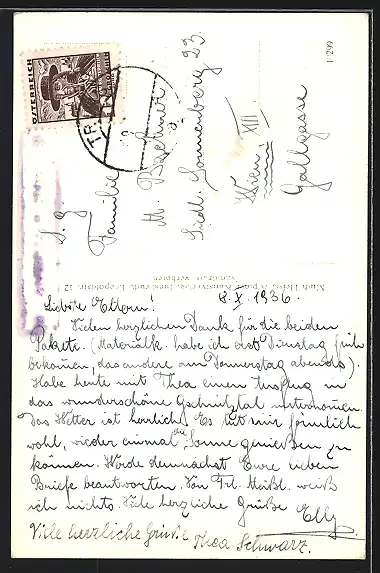 ÖSTERREICH
1/299
TR
S. g.
Familie
M.
Siedl. Sonnenberg 23.
Wien, XIII
Gallgasse
8. X. 1936.
Liebste Eltern!
Vielen herzlichen Dank für die beiden
Pakete. (Materialk. habe ich erst Dienstag früh
bekommen, das andere am Donnerstag abends).
Habe heute mit Thea einen Ausflug in
das wunderschöne Gschnitztal unternommen.
Das Wetter ist herrlich. Es tut mir förmlich
wohl, wieder einmal die Sonne genießen zu
können. Werde demnächst Eure lieben
Briefe beantworten. Von Frl. weiß
ich nichts. Viele herzliche Grüße Elly
Viele herzliche Grüße Thea Schwarz.